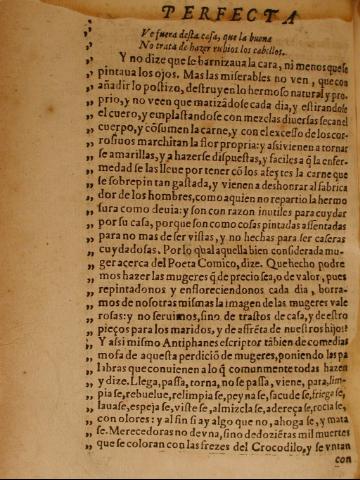 PERFECTA
Ve fuera desta casa, que la buena
No trata de hazer rubios los cabellos.
Y no dize que se barnizaua la cara, ni menos que se
pintaua los ojos. Mas las miserables no ven, que con
añadir lo postizo, destruyen lo hermoso natural y pro-
prio, y no veen que matizãdose cada dia, y estirandose
el cuero, y emplastandose con mezclas diuersas secan el
cuerpo, y cõsumen la carne, y con el excesso de los cor-
rosiuos marchitan la flor propria: y assi vienen a tornar
se amarillas, y a hazerse dispuestas, y faciles a q̃ la enfer-
medad se las lleue por tener cõ los afeytes la carne que
se sobrepintan gastada, y vienen a deshonrar al fabrica
dor de los hombres, como a quien no repartio la hermo
sura como deuia: y son con razon inutiles para cuydar
por su casa, porque son como cosas pintadas assentadas
para no mas de ser vistas, y no hechas para ser caseras
cuydadosas. Por lo qual aquella bien considerada mu-
ger acerca del Poeta Comico, dize. Que hecho podre
mos hazer las mugeres q̃ de precio sea, o de valor, pues
repintadonos y enfloreciendonos cada dia, borra-
mos de nosotras mismas la imagen de las mugeres vale
rosas: y no seruimos, sino de trastos de casa, y de estro
pieços para los maridos, y de affrẽta de nuestros hijos?
Y assi mismo Antiphanes escriptor tãbien de comedias
mofa de aquesta perdiciõ de mugeres, poniendo las pa
labras que conuienen a lo q̃ comunmente todas hazen
y dize. Llega, passa, torna, no se passa, viene, para, lim-
pia se, rebuelue, relimpia se, peyna se, sacude se, friega se,
lauase, espeja se, viste se, almizcla se, adereça se, rocia se,
con olores: y al fin si ay algo que no, ahoga se, y mata
se. Merecedoras no de vna, sino de doziẽtas mil muertes
que se coloran con las frezes del Crocodilo, y se vntan
con